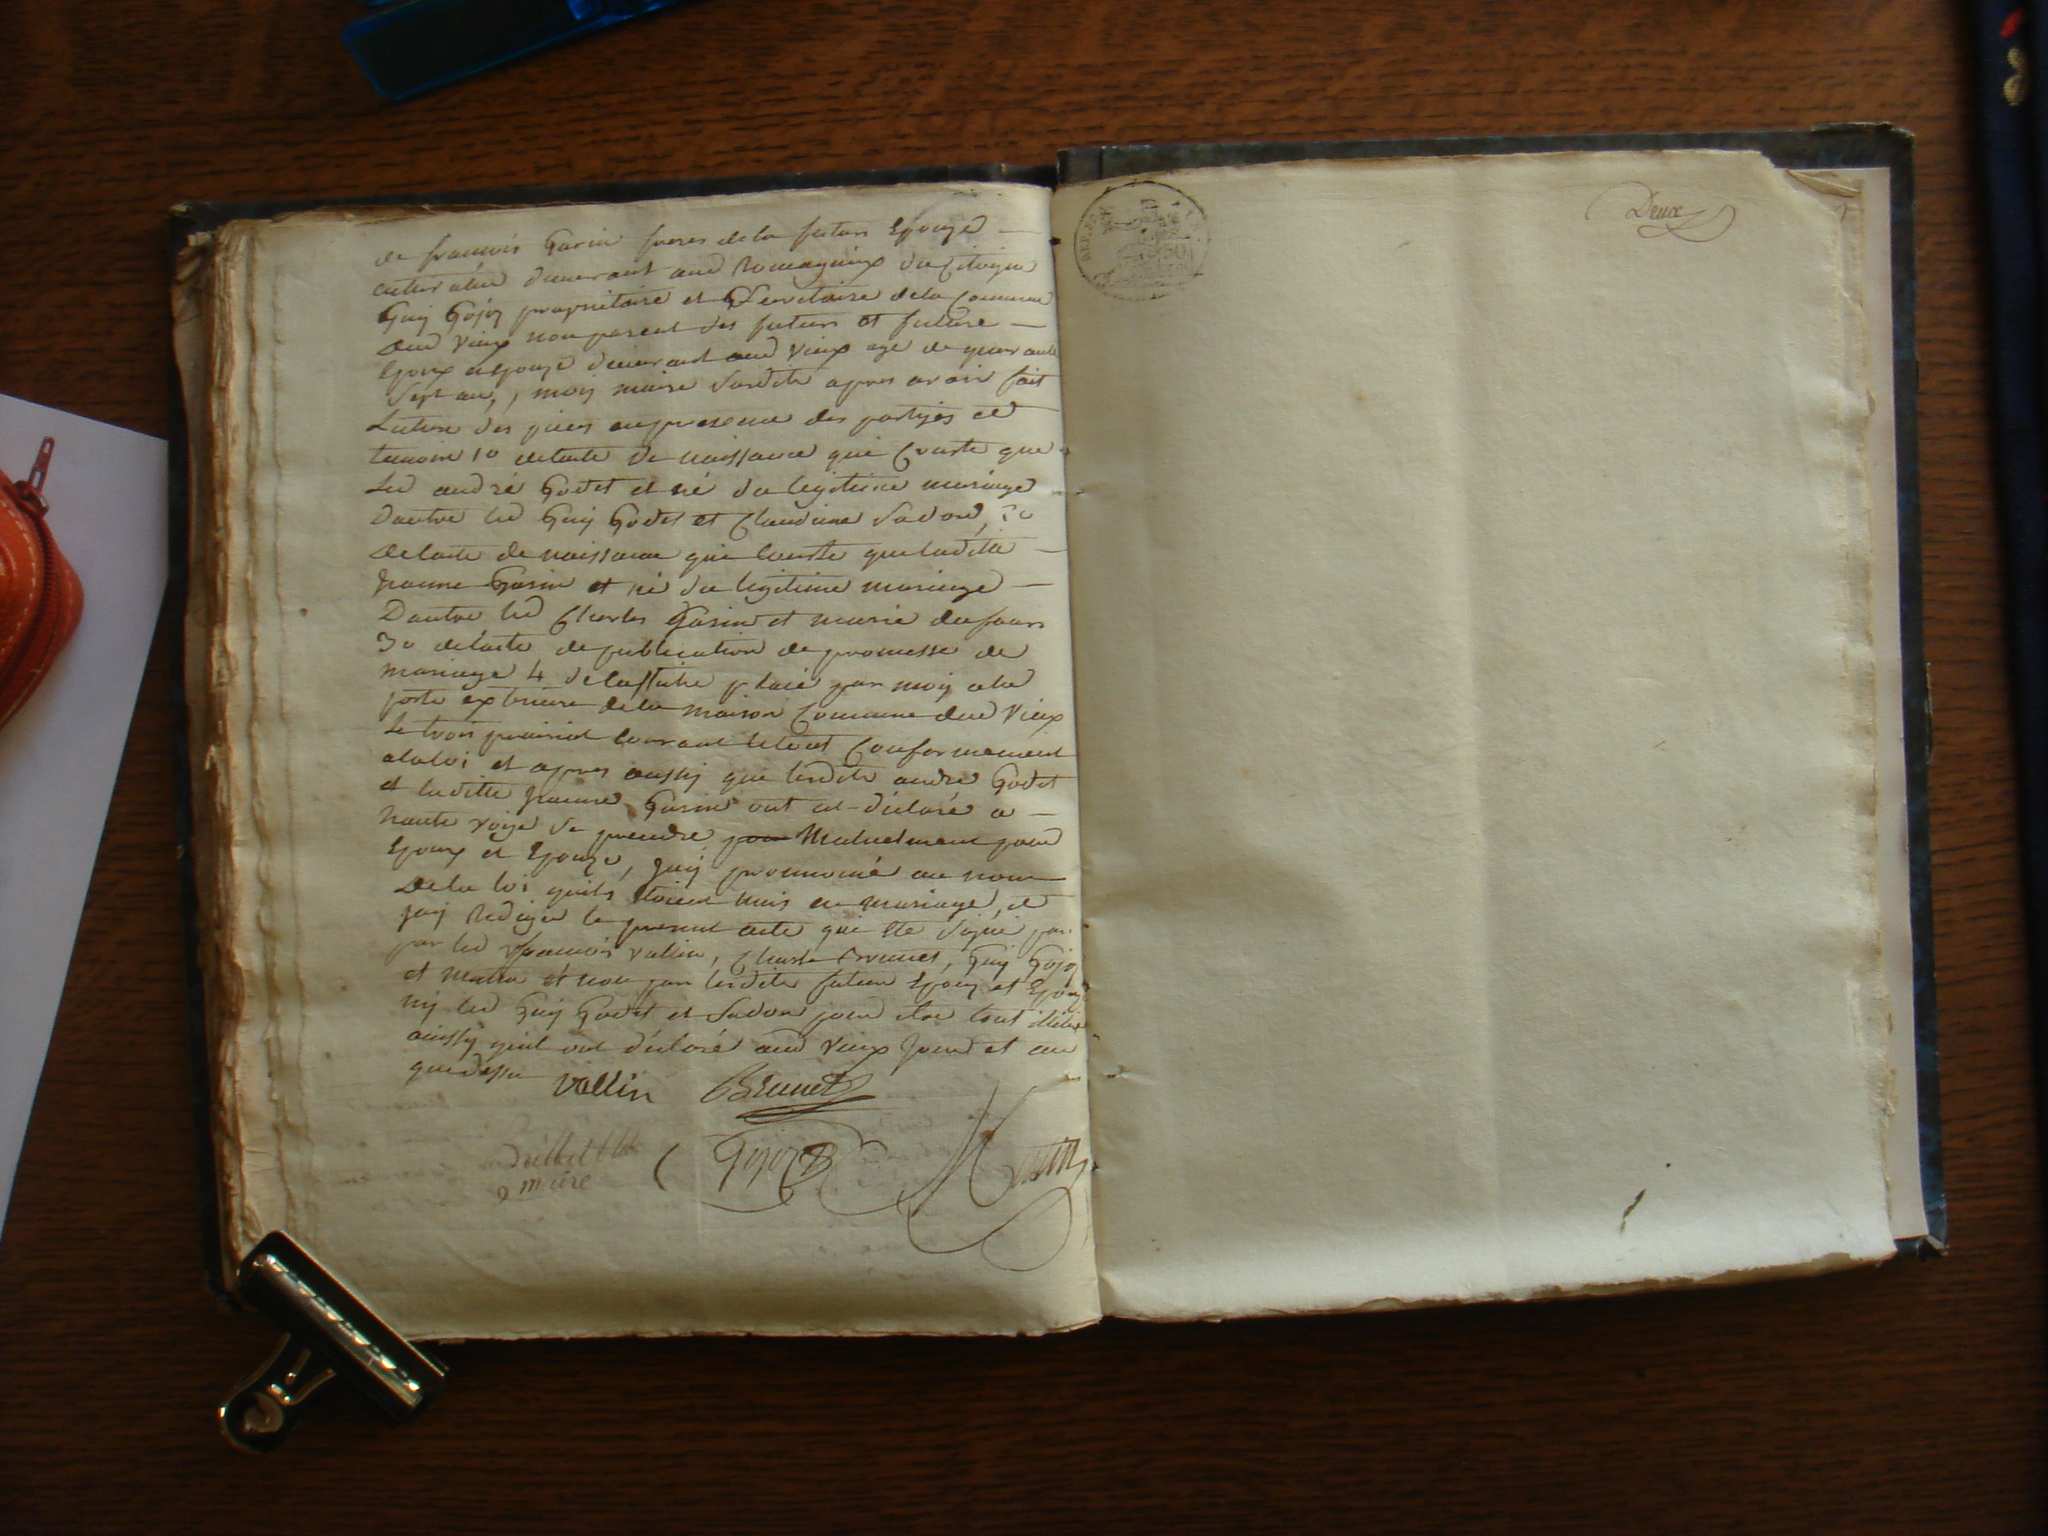 de francois Garin freres de la future Epouze
demeurant aud Romagnieux du Citoyen
Guy Gojoz proprietaire et Secretaire de la Commune
dud Vieux non parent des futurs et future
Epoux et Epouze demeurant aud Vieux age de quarante
Sept ans, moy maire Susdite apres avoir fait
Lecture des pieces en presence des partyes et
temoin 1o delacte de naissance qui Conste que
Led andré Godet et né du legitime mariage
Dautre led Guy Godet et Claudine Sadon, 2o
delacte de naissance qui Conste que ladite
Jeanne Garin et né du legitime mariage
Dautre led Charles Garin et marie dufour
3o delacte de publication de promesse de
mariage 4 de laffiche placé par moy a la
porte exterieure de la maison Commune dud Vieux
Le trois prairial Courant le tout Conformement
a la loi et apres aussy que lesdits andré Godet
et laditte Jeanne Garin ont déclaré a
haute voye se prendre pour Mutuelment pour
Epoux et Epouze, Jay prononcé au nom
de la loi quils etoient unis en mariage, et
Jay Redigé le present acte qui ete Signé par
par led francois Vallin, Charle Brunet, Guy Gojoz
et non par lesdits futeur Epoux et Epouze
ny led Guy Godet et Sadon pour etre tout illitere
aussy quil ont déclaré aud Vieux Jour et an
que dessu
Vallin Brunet
Gojoz
mere
Deux